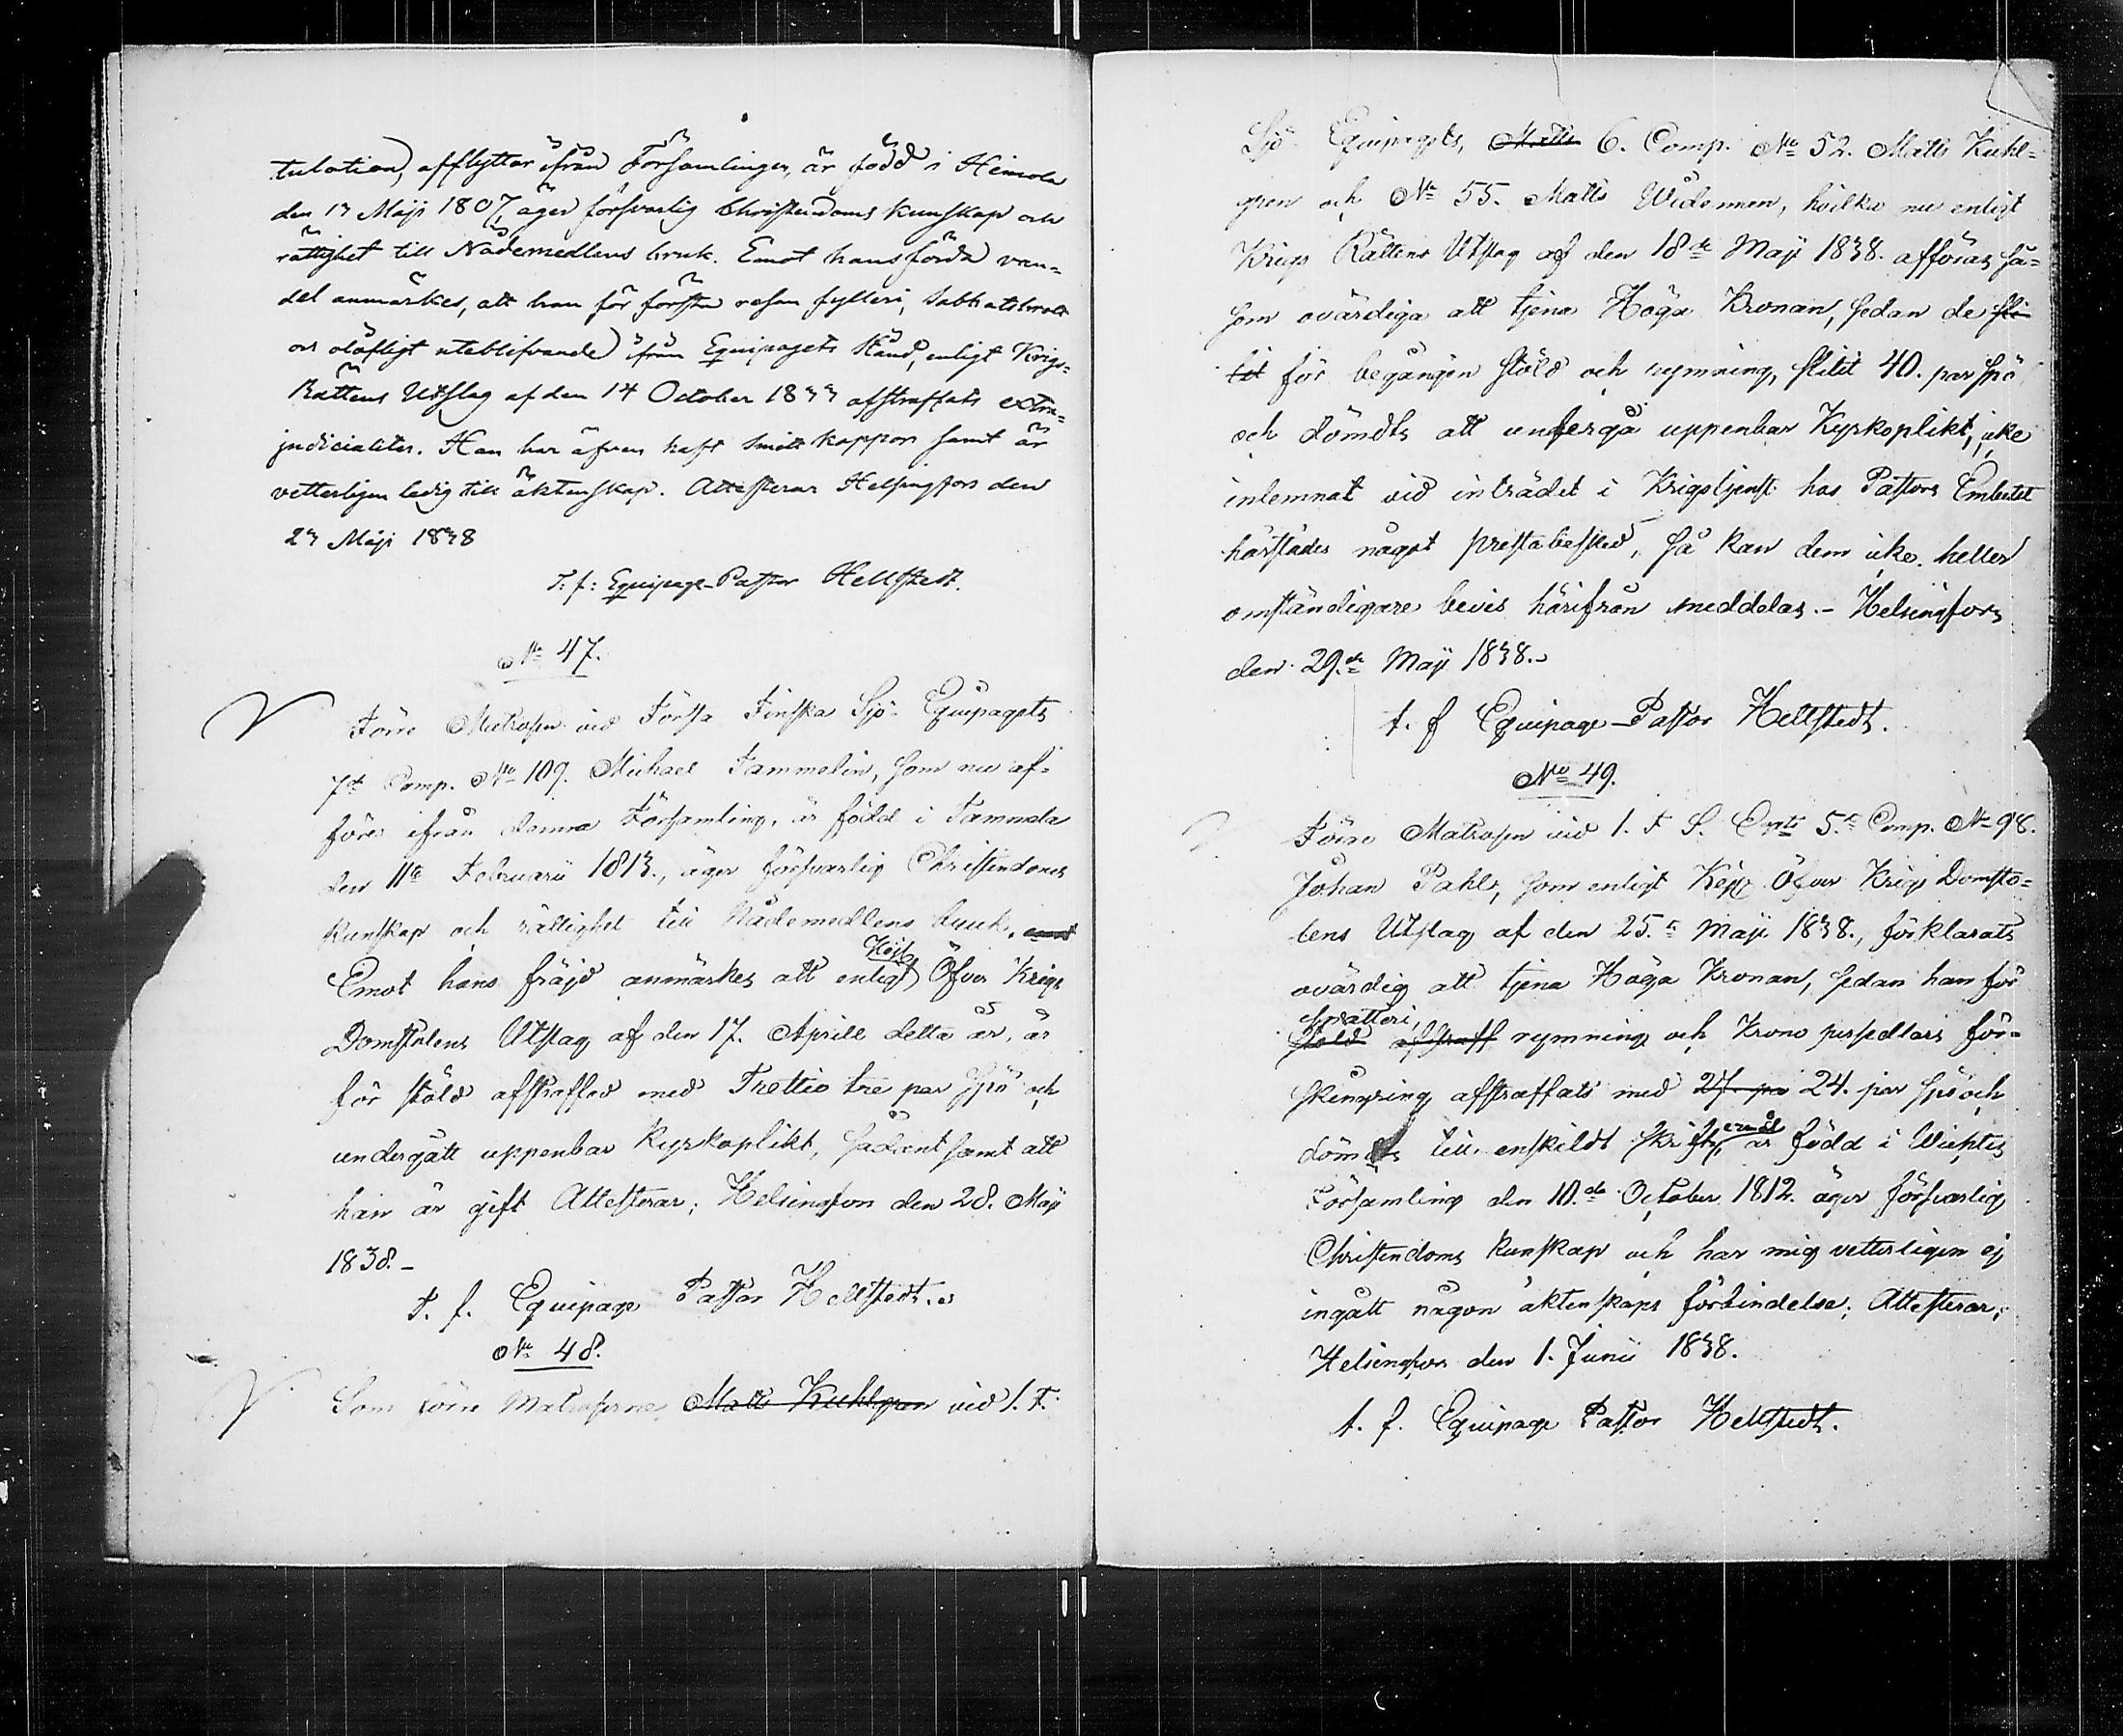 tulation, afflyttar ifrån Församlingen, är född i Heinola
den 13 Maji 1807, äger försvarlig Christendoms kunskap och
rättighet till Nådemedlens bruk. Emot hans förda van-
del anmärkes, att han för första resan fylleri, Sabbatsbrott
och olofligt uteblifvande ifrån Equipagets Stånd, enligt Krigs-
Rättens Utslag af den 14 October 1833 afstraffats extra-
judicialiter. Han har äfven haft Smittkoppor samt är
vetterligen ledig till äktenskap. Attesterar Helsingfors den
23 Maji 1838
T. f: Equipage-Pastor Hellstedt.
No 47.
Förre Matrosen vid Första Finska Sjö-Equipagets
7de Comp. No 109. Michael Tammelin, som nu af-
föres ifrån denna Församling, är född i Tammela
den 11te Februarii 1813., äger försvarlig Christendoms
kunskap och rättighet till Nådemedlens bruk. emot
Emot hans fräjd anmärkes att enligt Höga Öfver Krigs
Domstolens Utslag af den 17. Aprill detta år, är
för stöld afstraffad med Trettio tre par Spö och
undergått uppenbar Kyrkoplikt, sådant samt att
han är gift Attesterar; Helsingfors den 28. Maji
1838.-
t. f. Equipage Pastor Hellstedt.
No 48.
Som förre Matroserne Matts Kuhlgren vid 1. F.
Sjö-Equipagets, Matts 6. Comp. No 52. Matts Kuhl-
gren och No 55. Matts Widenmen, hvilka nu enligt
Krigs Rättens Utslag af den 18de Maji 1838. afföras så-
som ovärdiga att tjena Höga Kronan, sedan de sli-
tit för begången stöld och rymning, slitit 40. par spö
och dömdts att undergå uppenbar Kyrkoplikt, icke
inlemnat vid inträdet i Krigstjenst hos Pastors Embetet
härstädes något prestabesked, så kan dem icke heller
omständigare bevis härifrån meddelas. - Helsingfors
den 29de Maji 1838.
t. f Equipage-Pastor Hellstedt.
No 49.
Förre Matrosen vid 1. F. S. Eqts 5te Comp. No 98.
Johan Pahl, som enligt Kejs. Öfver Krigs Domsto-
lens Utslag af den 25te Maji 1838., förklarats
ovärdig att tjena Höga Kronan, sedan han för
snatteri,
Stöld afstraff rymning och Krono persedlars för-
skingring afstraffats med 27 par 24. par spö och
dömdts till enskildt skriftermål är född i Wichtis
Församling den 10de October 1812. äger försvarlig
Christendoms kunskap och har mig vetterligen ej
ingått någon äktenskaps förbindelse; Attesterar;
Helsingfors den 1. Junii 1838.
t. f. Equipage Pastor Hellstedt.